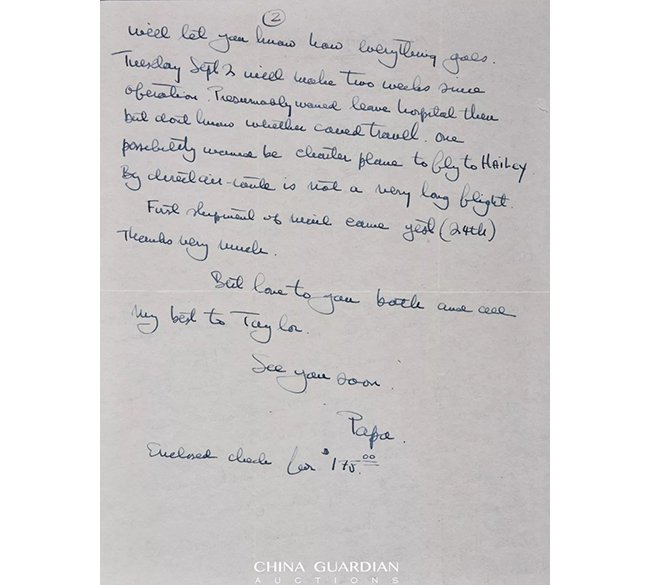 (2)
will let you know how everything goes.
Tuesday Sept 2 will make two weeks since
operation. Presumably would leave hospital then
but dont know whether could travel. One
possibility would be charter plane to fly to HAILEY.
By direct air-route is not a very long flight.
First shipment of mail came yest (24th)
Thanks very much.
Best love to you both and all
my best to Taylor.
See you soon.
Papa.
Enclosed check for $175.00
CHINA GUARDIAN
AUCTIONS